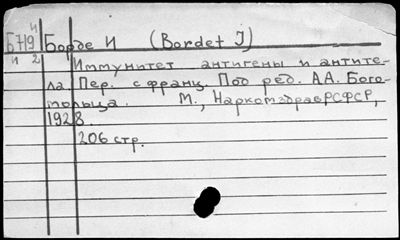 Б719 Борде И (Bordet J)
и 2 Иммунитет антигены и антите-
ла. Пер. с франц. Под ред. А.А. Бого-
мольца. М., НаркомздравРСФСР,
1928.
206 стр.